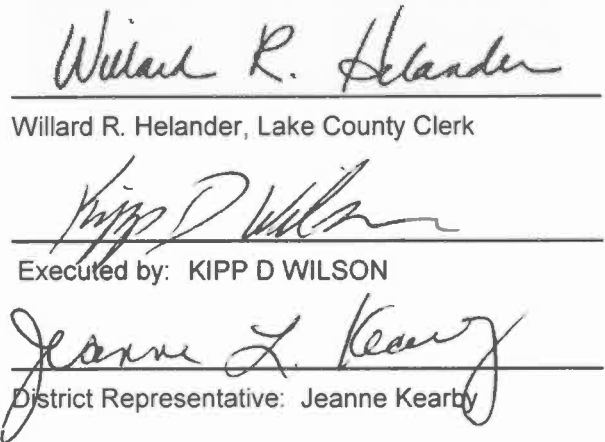 Willard R. Helander
Willard R. Helander, Lake County Clerk
Kipp D Wilson
Executed by: KIPP D WILSON
Jeanne L. Kearby
District Representative: Jeanne Kearby